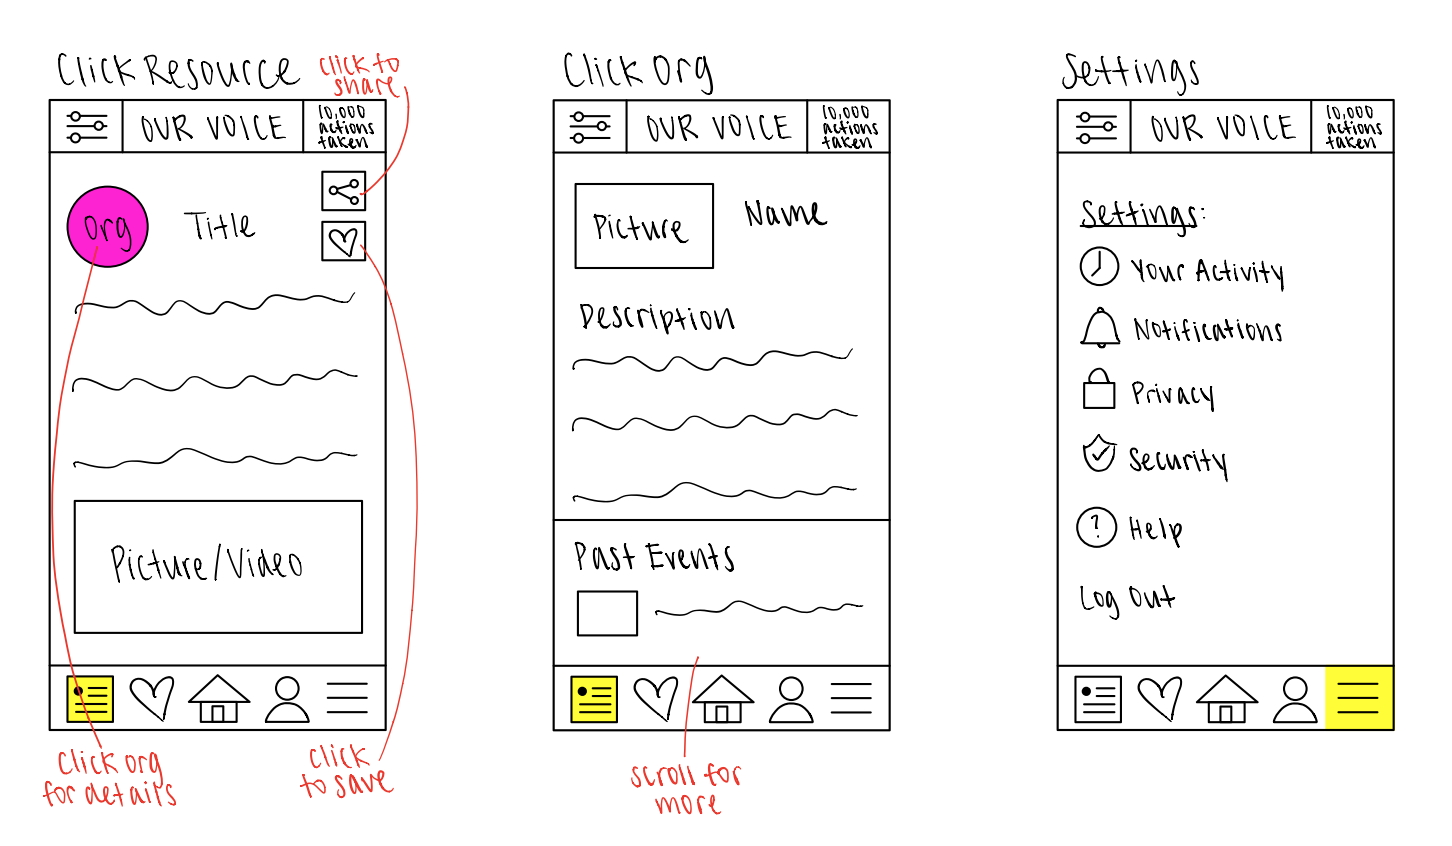 Click Resource
click to
share
OUR VOICE
10,000
actions
taken
Org
Title
Picture/Video
click org
for details
click
to save
Click Org
OUR VOICE
10,000
actions
taken
Picture
Name
Description
Past Events
scroll for
more
Settings
OUR VOICE
10,000
actions
taken
Settings:
Your Activity
Notifications
Privacy
Security
?
Help
Log Out